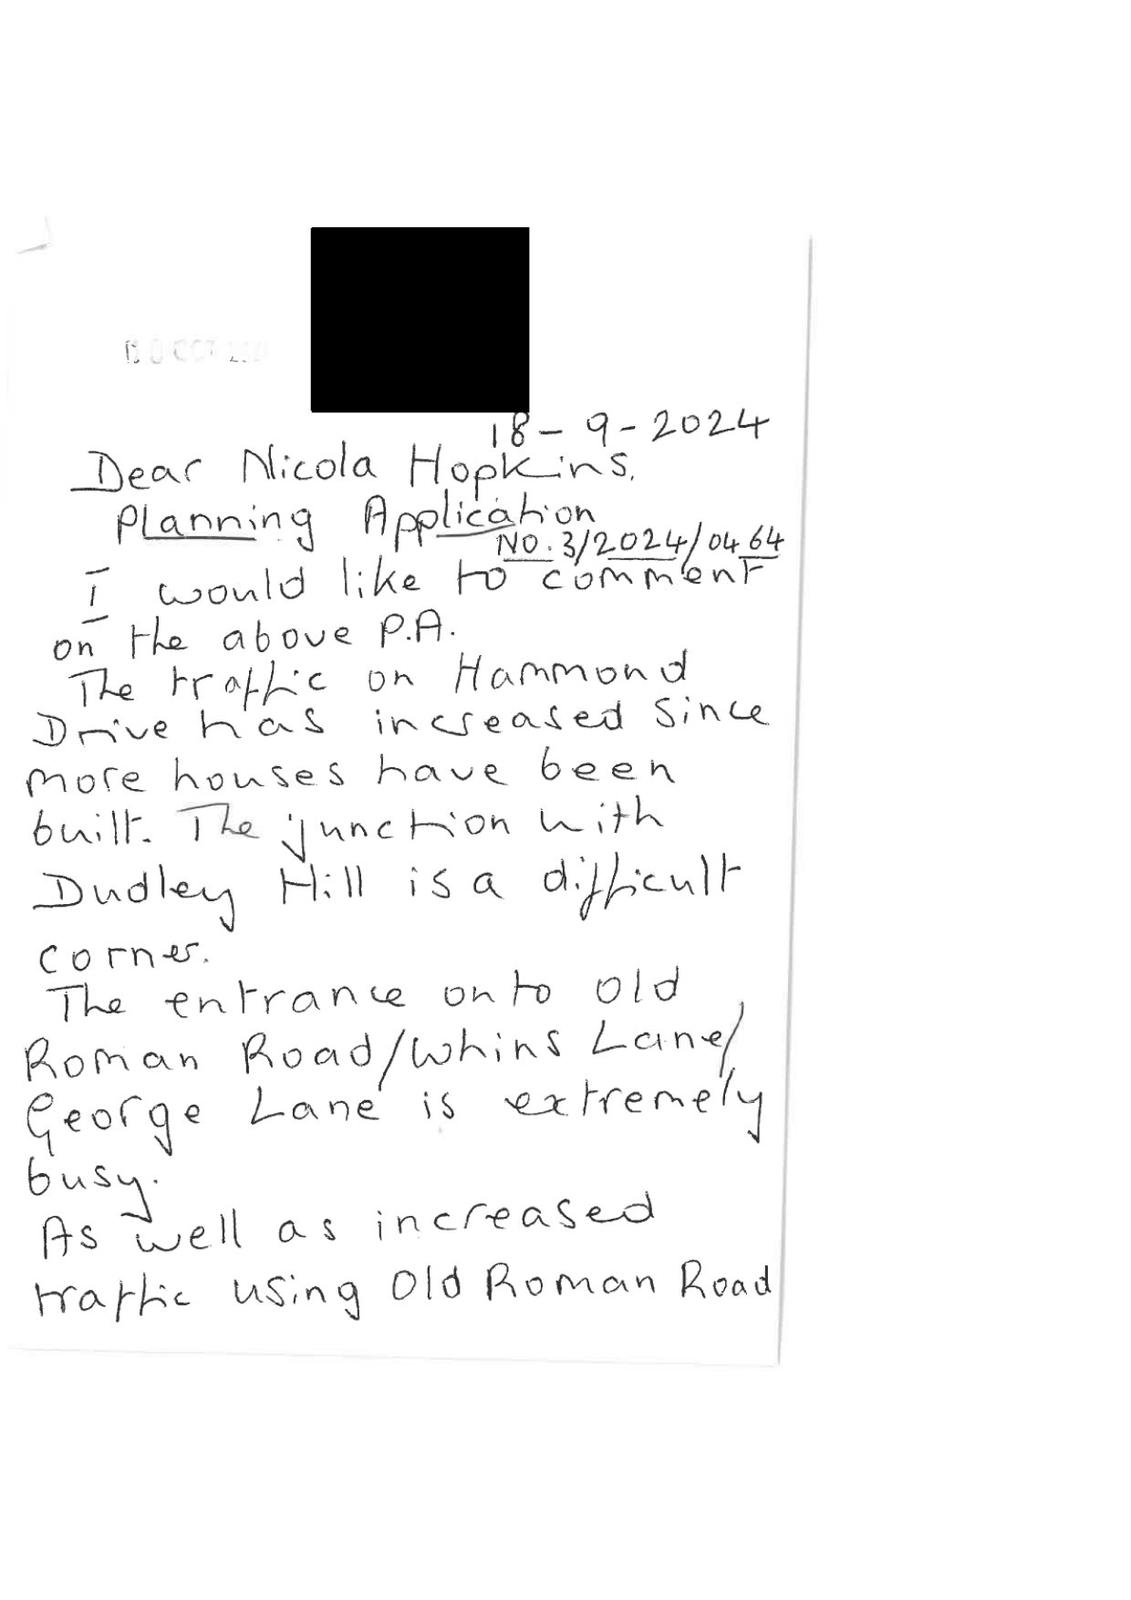 OCT
18-9-2024
Dear Nicola Hopkins,
Planning Application
NO. 3/2024/0464
I would like to comment
on the above P.A.
The traffic on Hammond
Drive has increased since
more houses have been
built. The junction with
Dudley Hill is a difficult
corner.
The entrance onto Old
Roman Road/Whins Lane/
George Lane is extremely
busy.
As well as increased
traffic using Old Roman Road